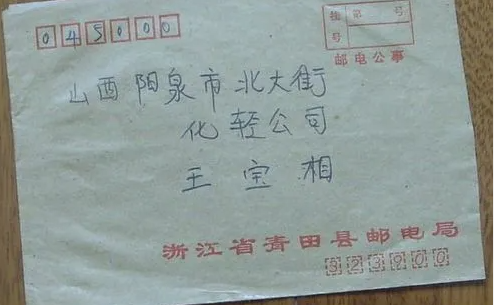 045000
挂 第 号
号
邮电公事
山西阳泉市北大街
化轻公司
王宝相
浙江省青田县邮电局
323900